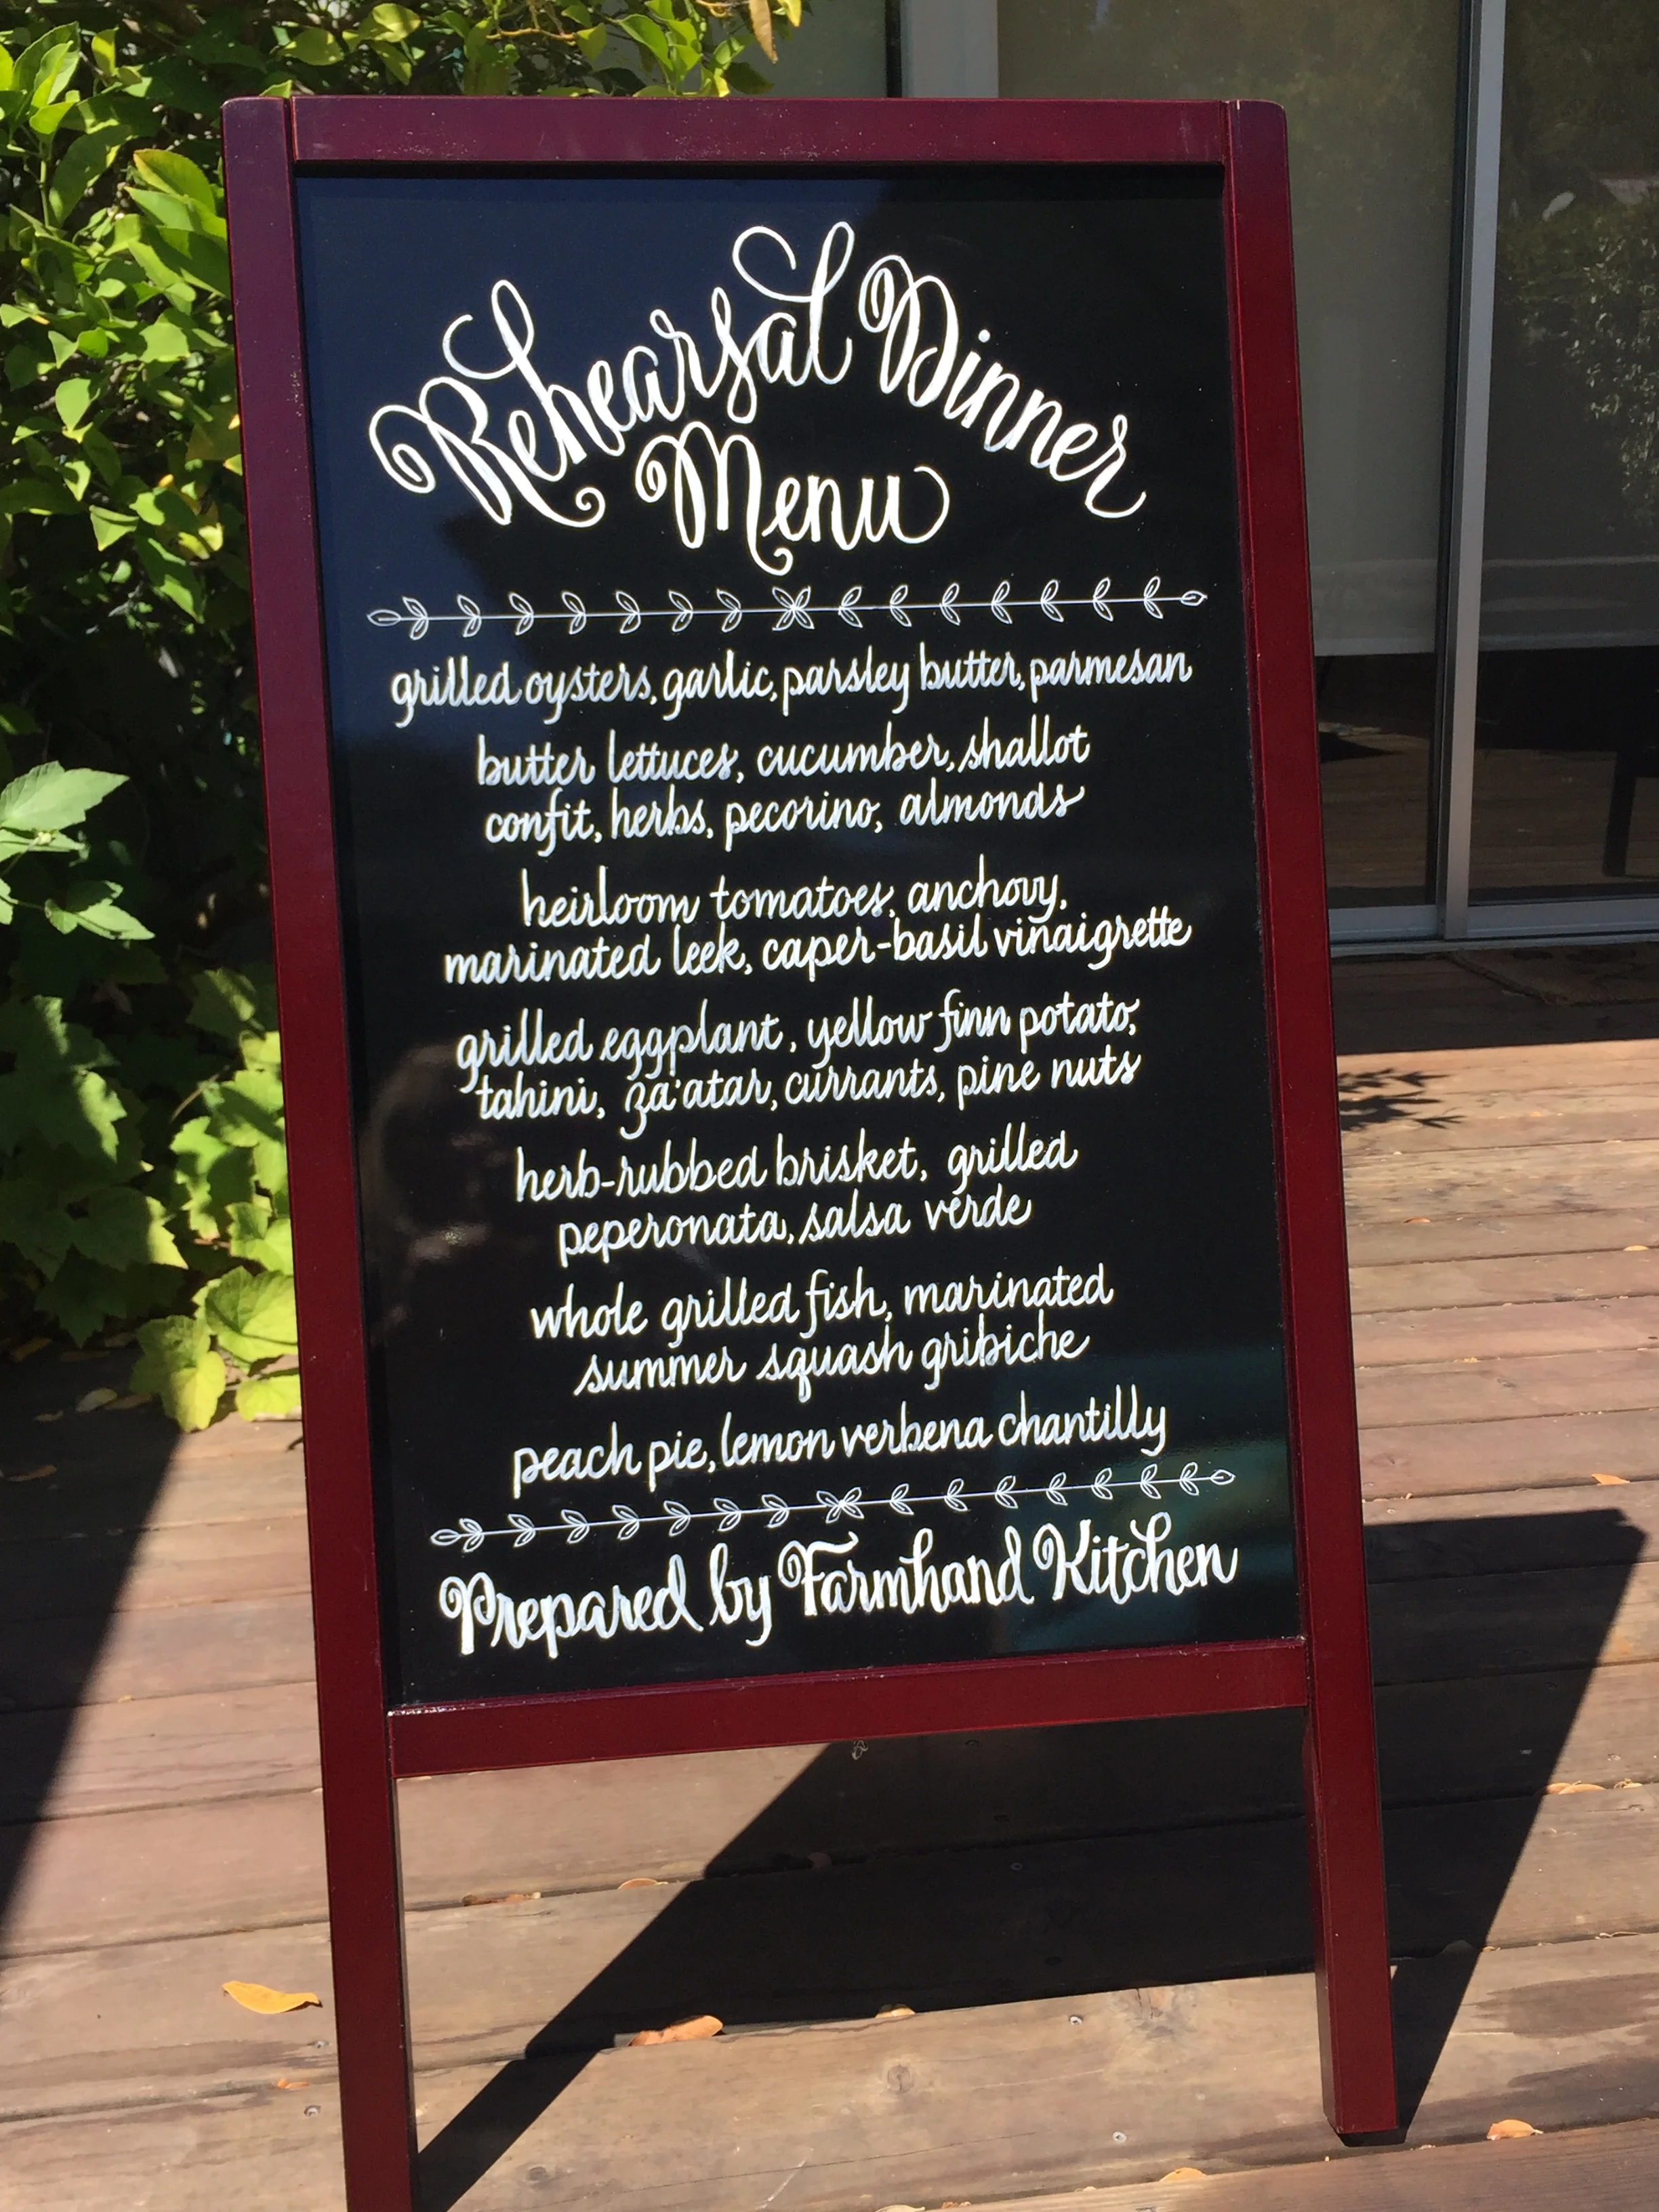 Rehearsal Dinner
Menu
grilled oysters, garlic, parsley butter, parmesan
butter lettuces, cucumber, shallot
confit, herbs, pecorino, almonds
heirloom tomatoes, anchovy,
marinated leek, caper-basil vinaigrette
grilled eggplant, yellow finn potato,
tahini, za'atar, currants, pine nuts
herb-rubbed brisket, grilled
peperonata, salsa verde
whole grilled fish, marinated
summer squash gribiche
peach pie, lemon verbena chantilly
Prepared by Farmhand Kitchen